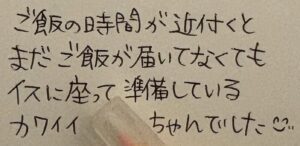 ご飯の時間が近付くと
まだご飯が届いてなくても
イスに座って準備している
カワイイ ちゃんでした